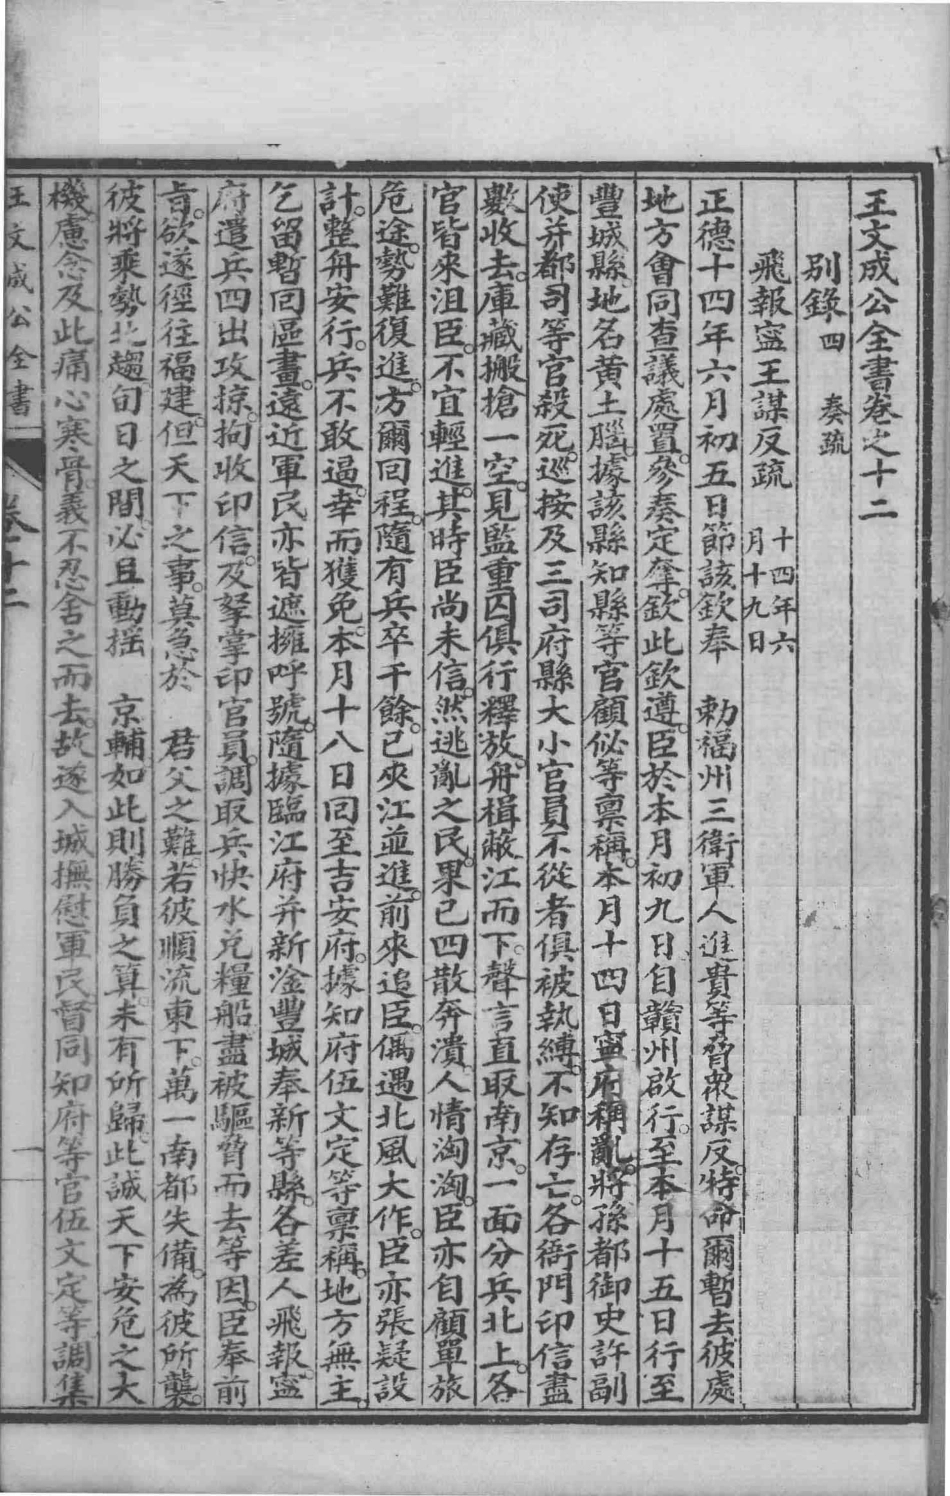 王文成公全書卷之十二
別錄四　奏疏
飛報寧王謀反疏　十四年六月十九日
正德十四年六月初五日節該欽奉　勅福州三衛軍人進貴等脅衆謀反。特命爾暫去彼處
地方會同查議處置。參奏定奪。欽此欽遵。臣於本月初九日自贛州啟行。至本月十五日行至
豐城縣。地名黃土腦。據該縣知縣等官顧佖等稟稱。本月十四日寧府稱亂。將孫都御史許副
使并都司等官殺死。巡按及三司府縣大小官員不從者俱被執縛。不知存亡。各衙門印信盡
數收去。庫藏搬搶一空。見監重囚俱行釋放。舟楫蔽江而下。聲言直取南京。一面分兵北上。各
官皆來沮臣。不宜輕進。其時臣尚未信。然逃亂之民。果已四散奔潰。人情洶洶。臣亦自顧單旅
危途。勢難復進。方爾回程。隨有兵卒千餘。已夾江並進。前來追臣。偶遇北風大作。臣亦張疑設
計。整舟安行。兵不敢逼。幸而獲免。本月十八日回至吉安府。據知府伍文定等稟稱。地方無主。
乞留暫回區畫。遠近軍民亦皆遮擁呼號。隨據臨江府并新淦豐城奉新等縣。各差人飛報。寧
府遣兵四出攻掠。拘收印信。及拏掌印官員。調取兵快水兌糧船盡被驅脅而去等因。臣奉前
旨。欲遂徑往福建。但天下之事。莫急於　君父之難。若彼順流東下。萬一南都失備。為彼所襲。
彼將乘勢北趨。旬日之間。必且動搖　京輔。如此則勝負之算。未有所歸。此誠天下安危之大
機。慮念及此。痛心寒骨。義不忍舍之而去。故遂入城撫慰軍民。督同知府等官伍文定等調集
王文成公全書　卷十二　一